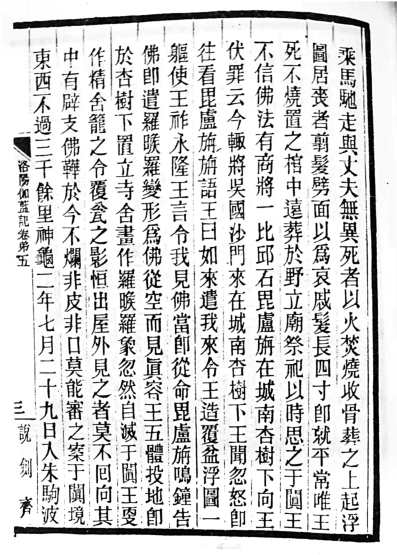 乘馬馳走與丈夫無異死者以火焚燒收骨葬之上起浮
圖居喪者翦髮劈面以爲哀戚髮長四寸卽就平常唯王
死不燒置之棺中遠葬於野立廟祭祀以時思之于闐王
不信佛法有商將一比邱石毘盧旃在城南杏樹下向王
伏罪云今輙將吳國沙門來在城南杏樹下王聞忽怒卽
往看毘盧旃旃語王曰如來遣我來令王造覆盆浮圖一
軀使王祚永隆王言令我見佛當卽從命毘盧旃鳴鐘告
佛卽遣羅睺羅變形爲佛從空而見眞容王五體投地卽
於杏樹下置立寺舍畫作羅睺羅象忽然自滅于闐王更
作精舍籠之令覆瓮之影恒出屋外見之者莫不回向其
中有辟支佛鞾於今不爛非皮非口莫能審之案于闐境
東西不過三千餘里神龜二年七月二十九日入朱駒波
洛陽伽藍記卷弟五
三
說劍齋